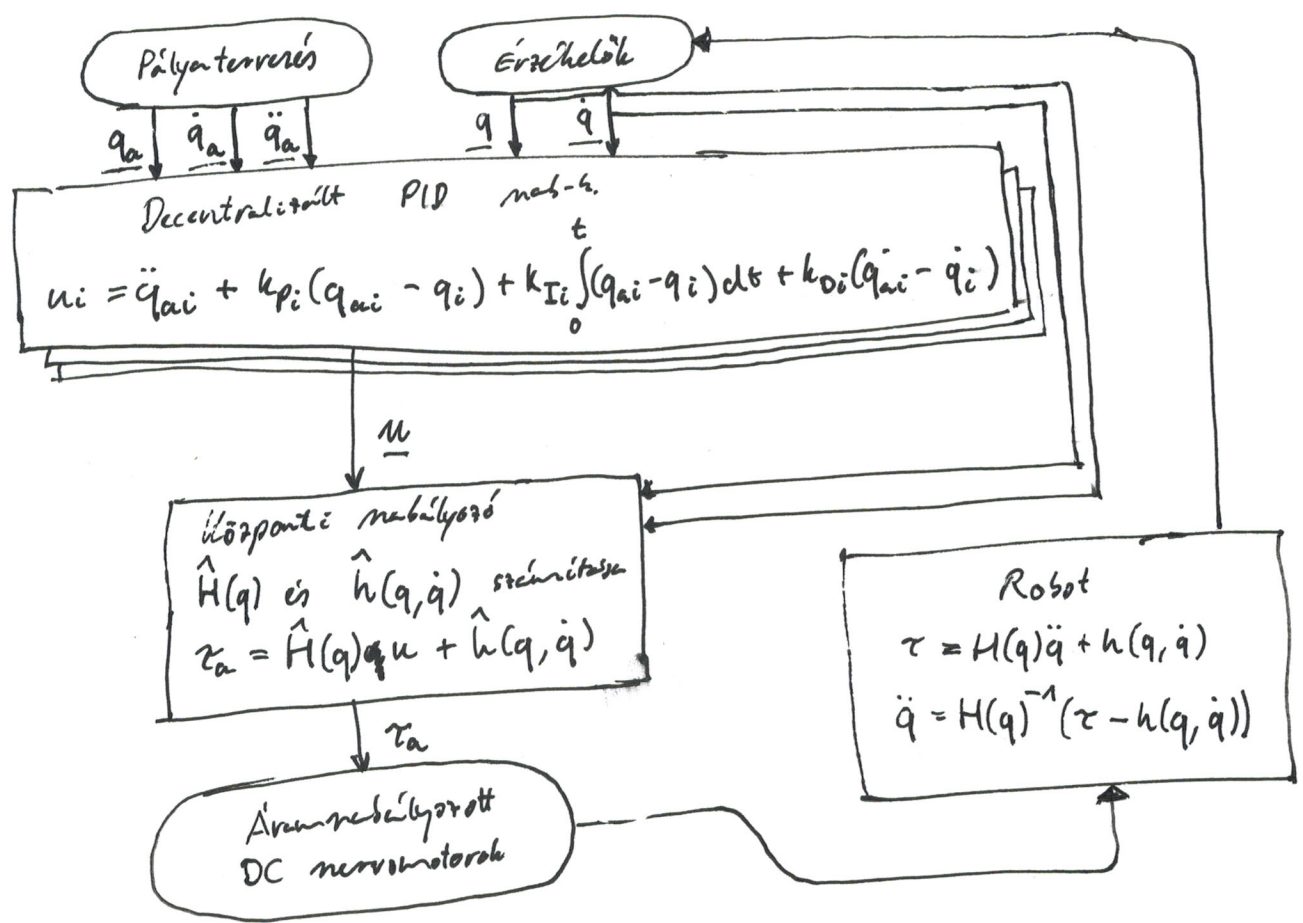 Pályatervezés
Érzékelők
q_a q̇_a q̈_a
q q̇
Decentralizált PID szab-k.
u_i = q̈_ai + k_Pi(q_ai - q_i) + k_Ii ∫_0^t (q_ai - q_i)dt + k_Di(q̇_ai - q̇_i)
u
Központi szabályozó
Ĥ(q) és ĥ(q, q̇) számítása
τ_a = Ĥ(q) u + ĥ(q, q̇)
τ_a
Áramszabályozott
DC szervomotorok
Robot
τ = H(q)q̈ + h(q, q̇)
q̈ = H(q)^-1 (τ - h(q, q̇))